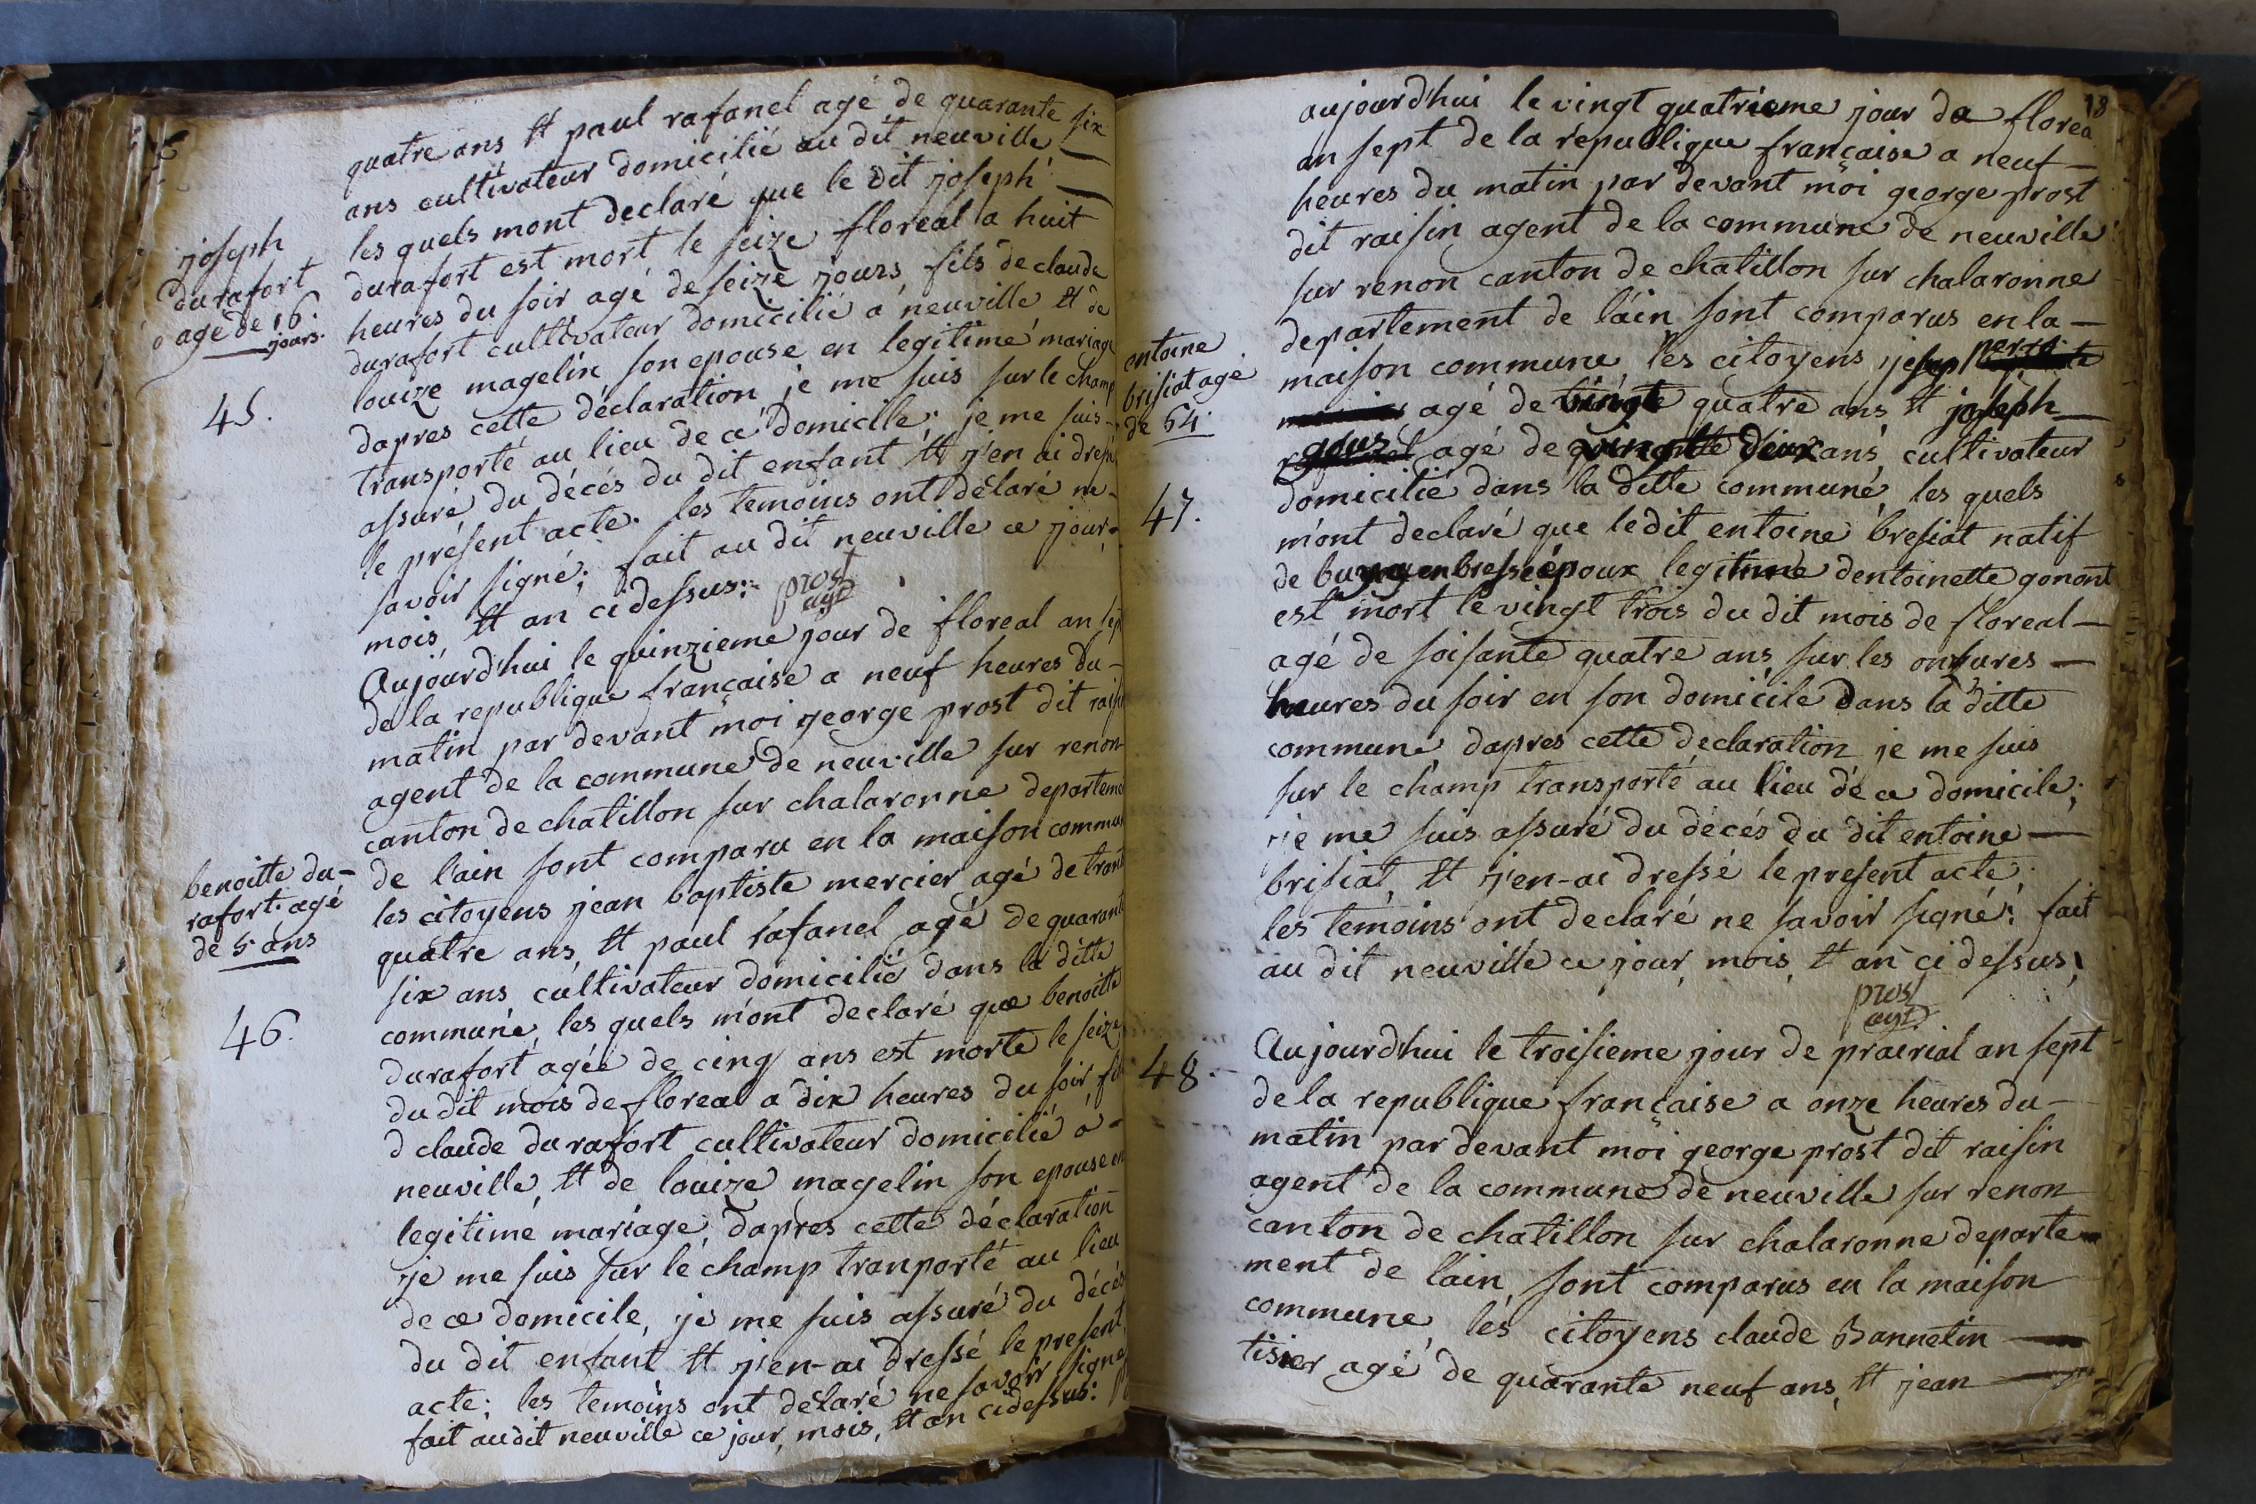 quatre ans et paul rafanel agé de quarante six
ans cultivateur domicilié au dit neuville
les quels mont declaré que le dit joseph
durafort est mort le seize floreal a huit
heures du soir agé de seize jours fils de claude
durafort cultivateur domicilié a neuville et de
louize magelin son epouse en legitime mariage
dapres cette déclaration je me suis sur le champ
transporté au lieu de ce domicille; je me suis
assuré du décés du dit enfant et j'en ai dressé
le présent acte. les temoins ont délaré ne
savoir signé; fait au dit neuville ce jour
mois, et an ci dessus:
prost
agt
joseph
durafort
agé de 16.
jours.
45.
Aujourd'hui le quinzieme jour de floreal an sept
de la republique française a neuf heures du-
matin par devant moi george prost dit raisin
agent de la commune de neuville sur renon
canton de chatillon sur chalaronne departeme
de l'ain sont comparu en la maison commun
les citoyens jean baptiste mercier agé de trant
quatre ans, et paul rafanel agé de quarant
six ans cultivateur domicilié dans la ditte
commune, les quels m'ont declaré que benoitte
durafort agée de cinq ans est morte le seize
du dit mois de floreal a dix heures du soir fil
d claude durafort cultivateur domicilié a-
neuville, et de louize magelin son epouse en
legitime mariage; dapres cette déclaration
je me suis sur le champ tranporté au lieu
de ce domicile, je me suis assuré du décés
du dit enfant et j'en-ai dressé le present
acte; les temoins ont délaré ne savoir signe
fait audit neuville ce jour, mois, et an ci dessus:
benoitte du-
rafort. agé
de 5 ans
46.
18
aujourd'hui le vingt quatrieme jour de florea
an sept de la republique française a neuf-
heures du matin par devant moi george prost
dit raisin agent de la commune de neuville
sur renon canton de chatillon sur chalaronne
departement de l'ain sont comparus en la-
maison commune, les citoyens
agé de vingt quatre ans et joseph
gouz agé de deux ans cultivateur
domicilié dans la ditte commune les quels
m'ont declaré que ledit entoine bresiat natif
de en bresse époux legitime dentoinette gonont
est mort le vingt trois du dit mois de floreal-
agé de soisante quatre ans sur les
heures du soir en son domicile dans la ditte
commune dapres cette declaration je me suis
sur le champ transporté au lieu de ce domicile;
je me suis assuré du décés du dit entoine-
brisiat, et j'en-ai dressé le present acte;
les temoins ont declaré ne savoir signé: fait
au dit neuville ce jour, mois, et an ci dessus;
prost
agt
antoine
brisiat agé
de 64.
47.
48.
Aujourd'hui le troisieme jour de prairial an sept
de la republique française a onze heures du-
matin par devant moi george prost dit raisin
agent de la commune de neuville sur renon
canton de chatillon sur chalaronne departe
ment de l'ain, sont comparus en la maison
commune, les citoyens claude Bannetin
tisier agé de quarante neuf ans, et jean